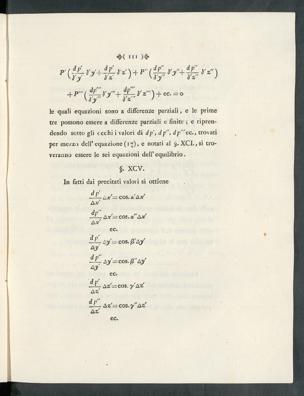 ( III )
P' ( dp'/Vy' Vy' + dp'/Vz' Vz' ) + P'' ( dp''/Vy'' Vy'' + dp''/Vz'' Vz'' )
+ P''' ( dp'''/Vy''' Vy''' + dp'''/Vz''' Vz''' ) + ec. = 0
le quali equazioni sono a differenze parziali, e le prime
tre possono essere a differenze parziali e finite; e ripren-
dendo sotto gli occhi i valori di dp', dp'', dp''' ec., trovati
per mezzo dell'equazione (17), e notati al §. XCI., si tro-
veranno essere le sei equazioni dell'equilibrio.
§. XCV.
In fatti dai precitati valori si ottiene
dp'/Δx' Δx' = cos. α' Δx'
dp''/Δx' Δx' = cos. α'' Δx'
ec.
dp'/Δy' Δy' = cos. β' Δy'
dp''/Δy' Δy' = cos. β'' Δy'
ec.
dp'/Δz' Δz' = cos. γ' Δz'
dp''/Δz' Δz' = cos. γ'' Δz'
ec.